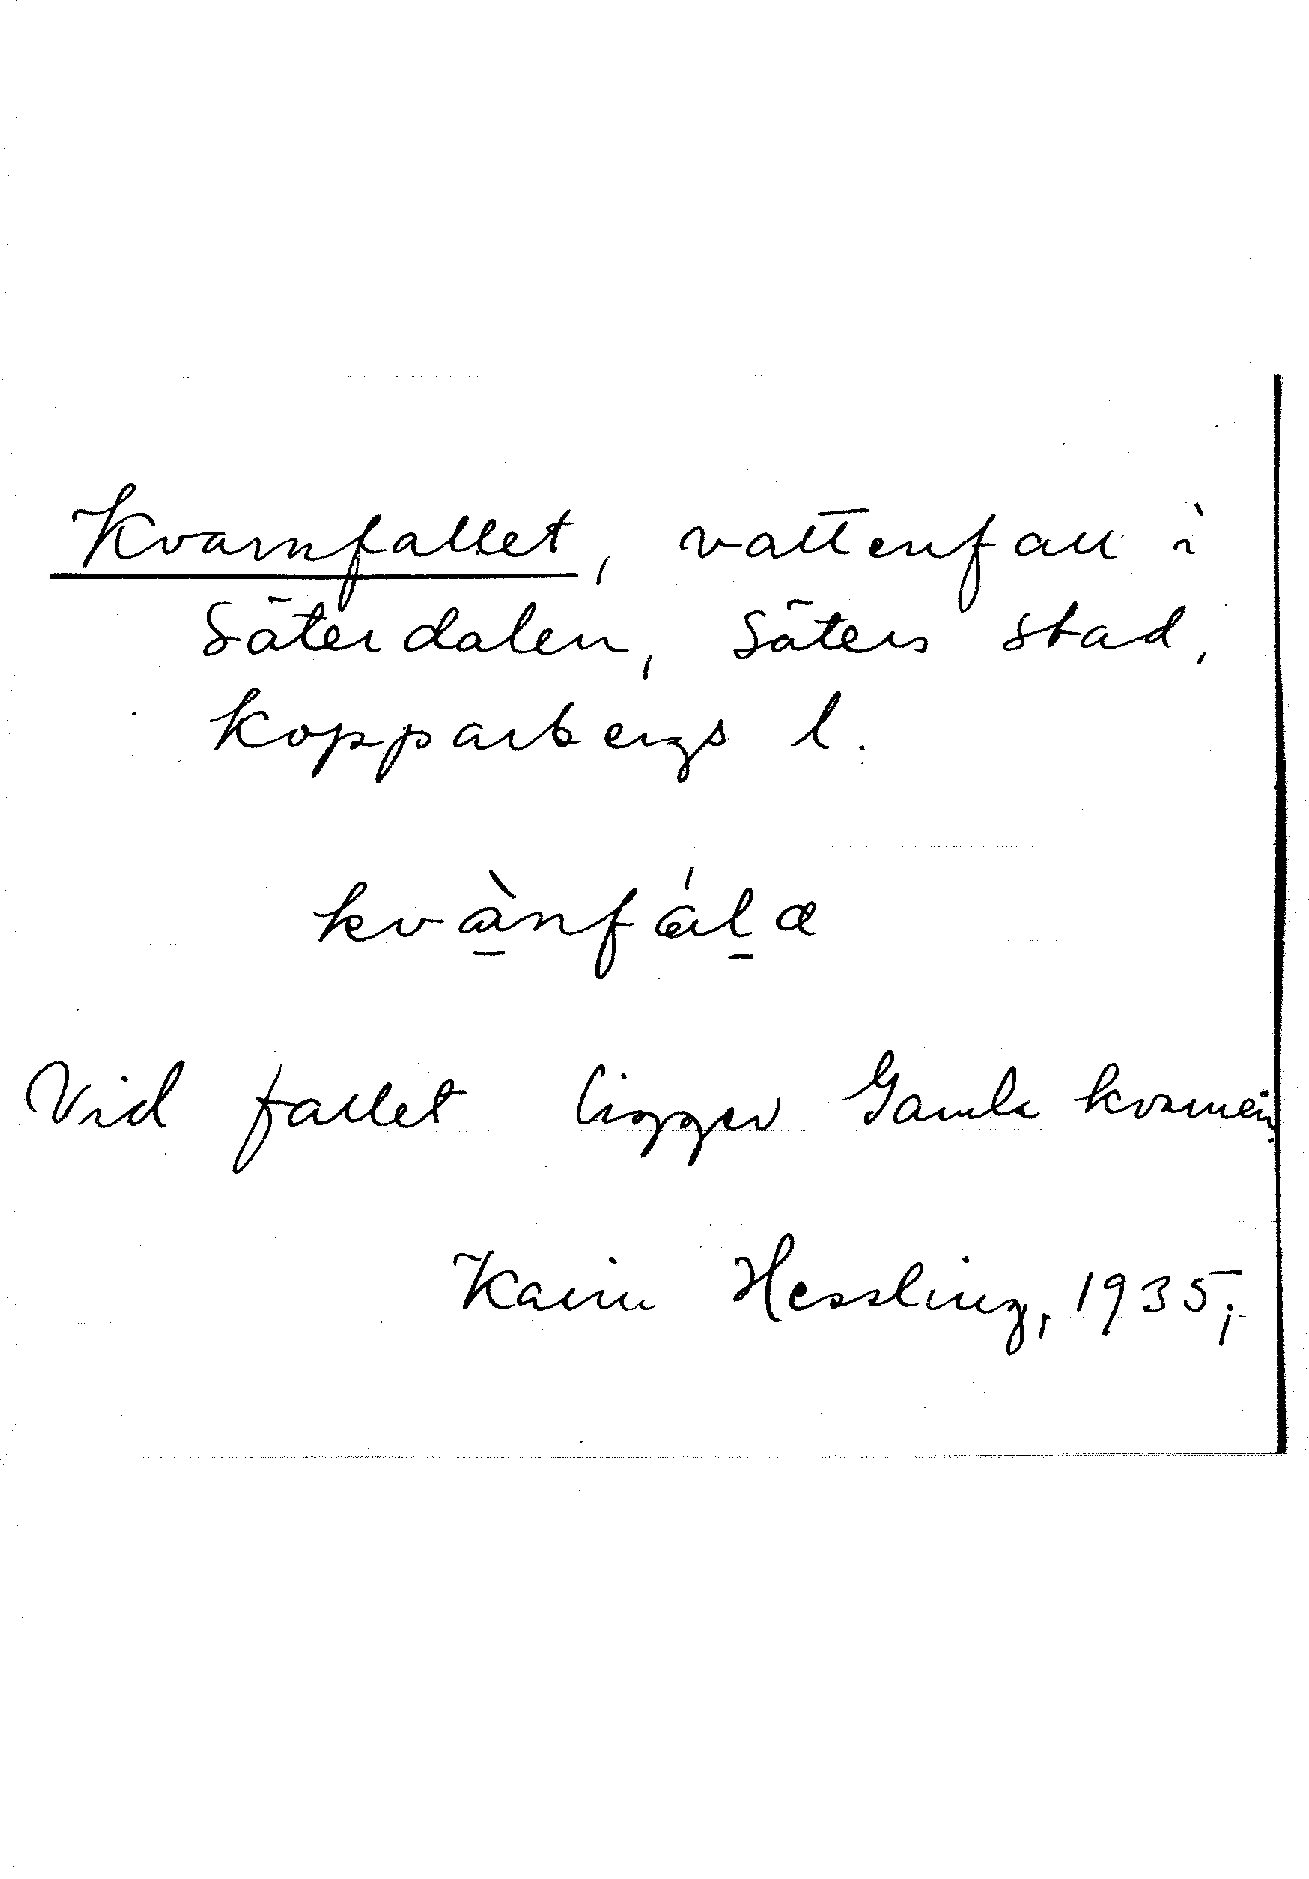 Kvarnfallet, vattenfall i
Säterdalen, Säters stad,
Kopparbergs l.
kvànfála
Vid fallet ligger Gamla kvarnen.
Karin Hessling, 1935;